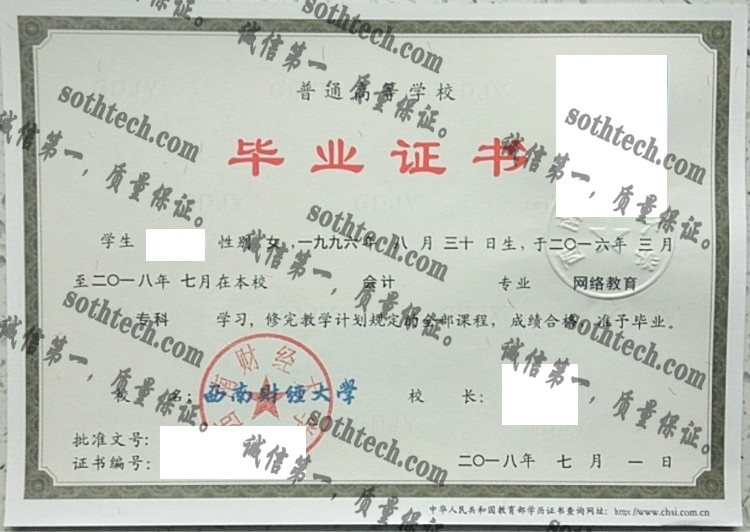 普通高等学校
毕业证书
学生 性别 女，一九九六年 八 月 三十 日生，于二〇一六年 三 月
至二〇一八年 七月在本校 会计 专业 网络教育
专科 学习，修完教学计划规定的全部课程，成绩合格，准予毕业。
校 名：西南财经大学 校 长：
批准文号：
证书编号： 二〇一八年 七 月 一 日
中华人民共和国教育部学历证书查询网址：http://www.chsi.com.cn
西南财经大学
sothtech.com
诚信第一，质量保证。
sothtech.com
诚信第一，质量保证。
sothtech.com
诚信第一，质量保证。
sothtech.com
诚信第一，质量保证。
sothtech.com
诚信第一，质量保证。
sothtech.com
诚信第一，质量保证。
sothtech.com
诚信第一，质量保证。